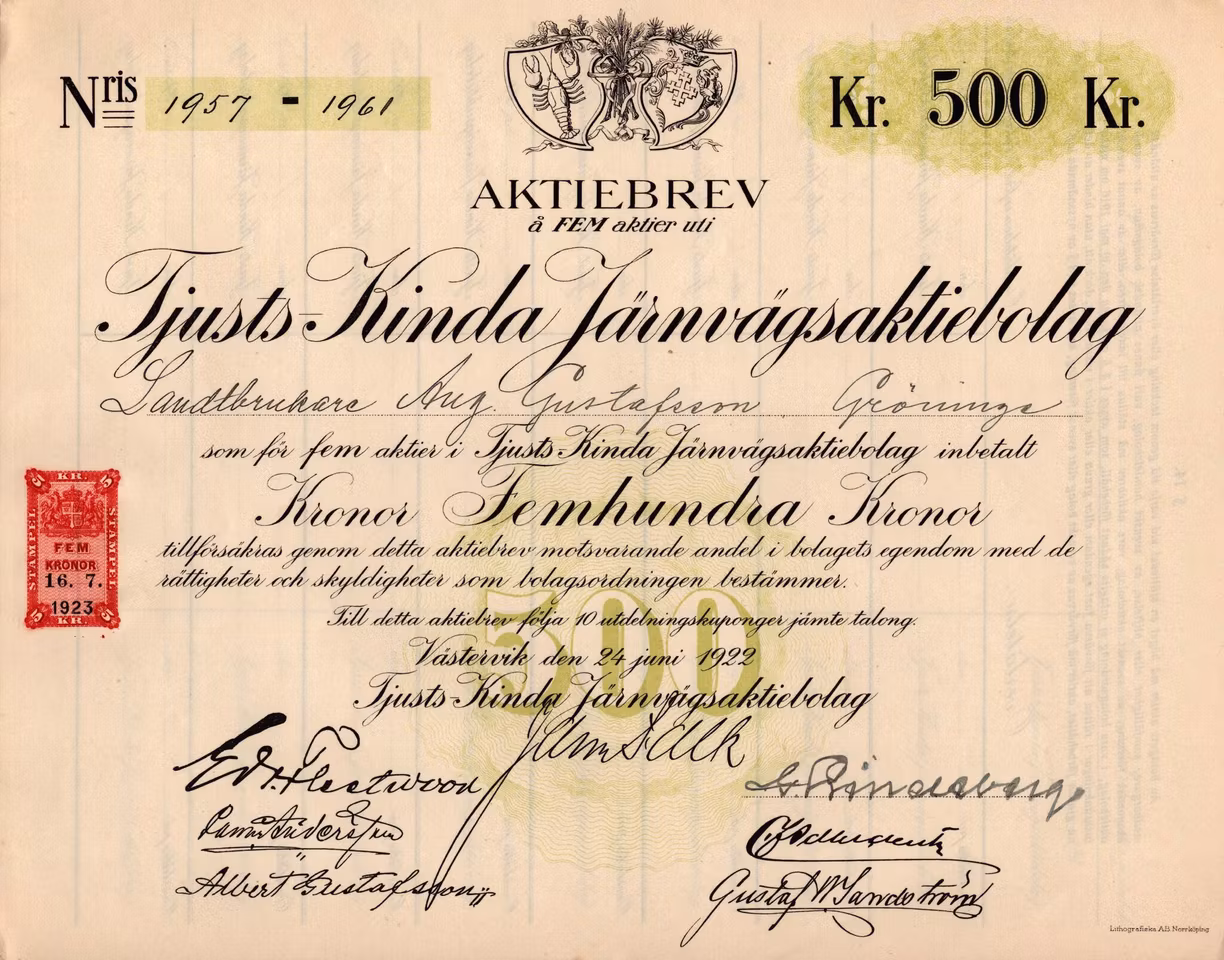 Nris 1957 - 1961
Kr. 500 Kr.
AKTIEBREV
å FEM aktier uti
Tjusts-Kinda Järnvägsaktiebolag
Landtbrukare Aug. Gustafsson Gröninge
som för fem aktier i Tjusts-Kinda Järnvägsaktiebolag inbetalt
Kronor Femhundra Kronor
tillförsäkras genom detta aktiebrev motsvarande andel i bolagets egendom med de
rättigheter och skyldigheter som bolagsordningen bestämmer.
Till detta aktiebrev följa 10 utdelningskuponger jämte talong.
500
Västervik den 24 juni 1922
Tjusts-Kinda Järnvägsaktiebolag
5 KR. 5
STAMPEL
STAMPEL
FEM
KRONOR
16. 7.
1923
5 KR. 5
Fleetwood
Albert Gustafsson
Gustaf W Sandström
Lithografiska A.B. Norrköping